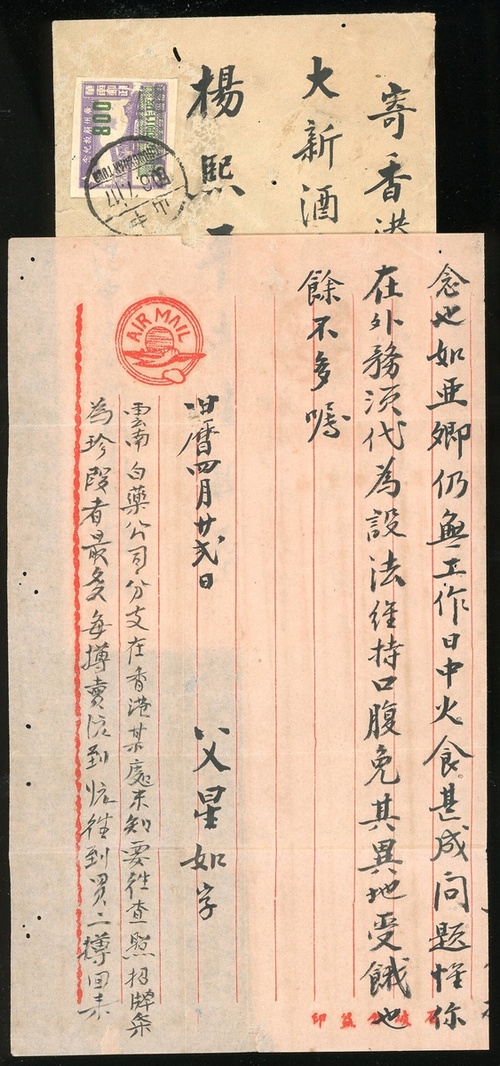 寄香港
大新酒
楊熙
800
中山
AIR MAIL
念也如亚卿仍無工作日中火食甚成問題惟你
在外務須代為設法維持口腹免其異地受餓也
餘不多囑
旧曆四月廿弍日
父星如字
雲南白藥公司分支在香港某處未知要往查照招牌条
為珍段者最多每摶賣 到 往到買二摶回来
益印